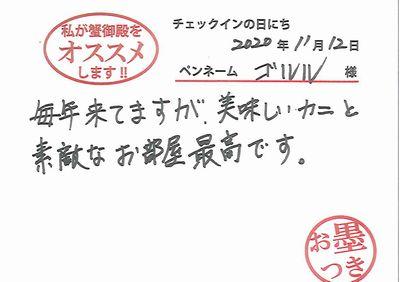 私が蟹御殿を
オススメ
します!!
チェックインの日にち
2020年11月12日
ペンネーム ゴルル 様
毎年来てますが、美味しいカニと
素敵なお部屋最高です。
お墨
つき